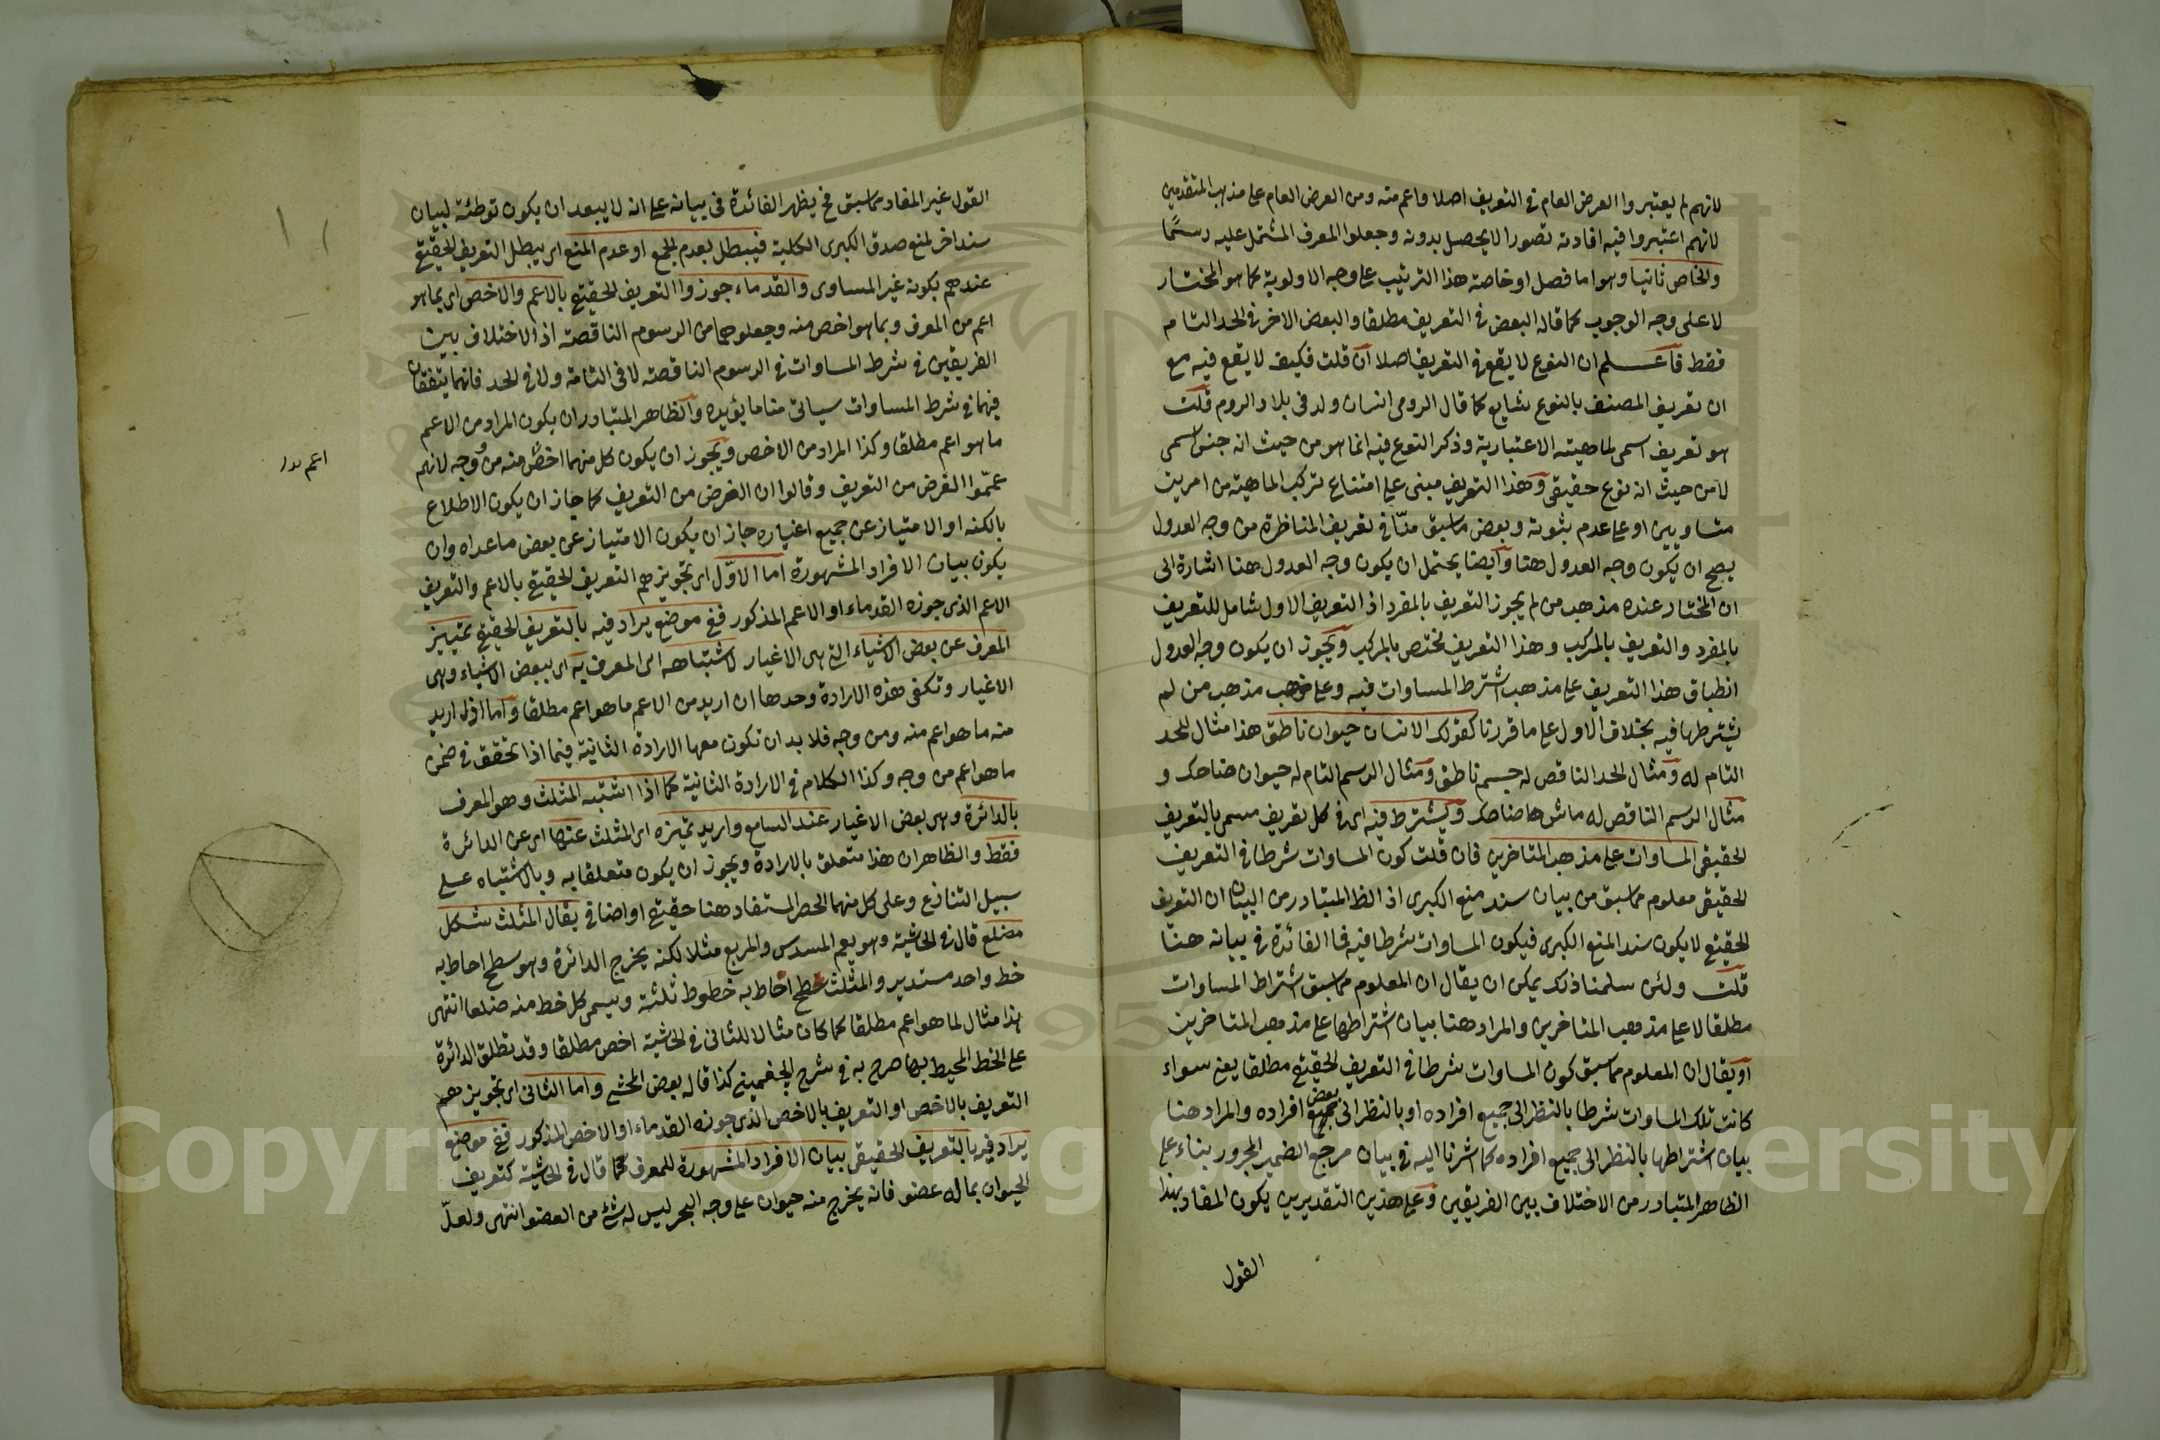 لانهم لم يعتبروا العرض العام في التعريف اصلا واعم منه ومن العرض العام على مذهب المتقدمين
لانهم اعتبروا فيه افادته تصورا لا يحصل بدونه وجعلوا المعرف المشتمل عليه رسمًا
والخاص ثانيا وهو اما فصل او خاصة هذا الترتيب على وجه الاولوية كما هو المختار
لا على وجه الوجوب كما قاله البعض في التعريف مطلقا والبعض الاخر في الحد التام
فقط فاعلم ان النوع لا يقع في التعريف اصلا ان قلت فكيف لا يقع فيه مع
ان تعريف المصنف بالنوع شايع كما قال الرومي انسان ولد في بلاد الروم قلت
هو تعريف اسمي لماهيته الاعتبارية وذكر النوع فيه انما هو من حيث انه جنس اسمي
لا من حيث انه نوع حقيقي وهذا التعريف مبني على امتناع تركب الماهية من امرين
متساويين او على عدم ثبوته وبعض ما سبق منا في تعريف المناظرة من وجه العدول
يصح ان يكون وجه العدول هنا وايضا يحتمل ان يكون وجه العدول هنا اشارة الى
ان المختار عنده مذهب من لم يجوز التعريف بالمفرد اذ التعريف الاول شامل للتعريف
بالمفرد والتعريف بالمركب وهذا التعريف مختص بالمركب ويجوز ان يكون وجه العدول
انطباق هذا التعريف على مذهب اشترط المساوات فيه وعلى مذهب من لم
يشترطها فيه بخلاف الاول على ما قررنا كقولك الانسان حيوان ناطق هذا مثال للحد
التام له ومثال الحد الناقص له جسم ناطق ومثال الرسم التام له حيوان ضاحك و
مثال الرسم الناقص له ماش ضاحك ويشترط فيه اى في كل تعريف مسمى بالتعريف
الحقيقي المساوات على مذهب المتاخرين فان قلت كون المساوات شرطا في التعريف
الحقيقي معلوم مما سبق من بيان سند منع الكبرى اذ الظ المتبادر من البيان ان التعريف
الحقيقي لا يكون سند المنع الكبرى فيكون المساوات شرطا فيه فما الفائدة في بيانه هنا
قلت ولئن سلمنا ذلك يمكن ان يقال ان المعلوم مما سبق اشتراط المساوات
مطلقا لا على مذهب المتاخرين والمراد هنا بيان اشتراطها على مذهب المتاخرين
او يقال ان المعلوم مما سبق كون المساوات شرطا في التعريف الحقيقي مطلقا يعني سواء
كانت تلك المساوات شرطا بالنظر الى جميع افراده او بالنظر الى بعض افراده والمراد هنا
بيان اشتراطها بالنظر الى جميع افراده كما اشرنا اليه في بيان مرجع الضمير المجرور بناء على
الظاهر المتبادر من الاختلاف بين الفريقين وعلى هذين التقديرين يكون المفاد بهذا
القول
القول غير المفاد مما سبق فح يظهر الفائدة في بيانه على انه لا يبعد ان يكون توطئة لبيان
سند اخر لمنع صدق الكبرى الكلية فيبطل بعدم الجمع او عدم المنع اى يبطل التعريف الحقيقي
عندهم بكونه غير المساوى والقدماء جوزوا التعريف الحقيقي بالاعم والاخص اى بما هو
اعم من المعرف وبما هو اخص منه وجعلوهما من الرسوم الناقصة اذ الاختلاف بين
الفريقين في شرط المساوات في الرسوم الناقصة لا في التامة ولا في الحد فانهما يتفقان
فيهما في شرط المساوات سياتي منا ما يؤيده والظاهر المتبادر ان يكون المراد من الاعم
ما هو اعم مطلقا وكذا المراد من الاخص ويجوز ان يكون كل منهما اخص منه من وجه لانهم
عمّموا الغرض من التعريف وقالوا ان الغرض من التعريف كما جاز ان يكون الاطلاع
بالكنه او الامتياز عن جميع اغياره جاز ان يكون الامتياز عن بعض ما عداه وان
يكون بيان الافراد المشهورة اما الاوّل اى تجويزهم التعريف الحقيقي بالاعم والتعريف
الاعم الذى جوزه القدماء او الاعم المذكور ففي موضع يراد فيه بالتعريف الحقيقي تمييز
المعرف عن بعض الاشياء التي هى الاغيار لاشتباهه اى المعرف به اى ببعض الاشياء وهى
الاغيار وتكفي هذه الارادة وحدها ان اريد من الاعم ما هو اعم مطلقا واما اذا اريد
منه ما هو اعم منه ومن وجه فلا بد ان تكون معها الارادة الثانية فيما اذا تحقق في ضمن
ما هو اعم من وجه وكذا الكلام في الارادة الثانية كما اذا اشتبه المثلث وهو المعرف
بالدائرة وهى بعض الاغيار عند السامع واريد تميزه اى المثلث عنها اى عن الدائرة
فقط والظاهر ان هذا متعلق بالارادة ويجوز ان يكون متعلقا به وبالاشتباه على
سبيل التنازع وعلى كل منهما الحصر المستفاد هنا حقيقي او اضافي يقال المثلث شكل
مضلع قال في الحاشية وهو يعم المسدس والمربع مثلا لكنه يخرج الدائرة وهو سطح احاط به
خط واحد مستدير والمثلث سطح احاط به خطوط ثلثة ويسمى كل خط منه ضلعا انتهى
هذا مثال لما هو اعم مطلقا كما كان مثالا للثاني في الحاشية اخص مطلقا وقد تطلق الدائرة
على الخط المحيط بها صرح به في شرح الجغميني كذا قال بعض المحشى واما الثانى اى تجويزهم
التعريف بالاخص او التعريف بالاخص الذى جوزه القدماء او الاخص المذكور ففي موضع
يراد فيه بالتعريف الحقيقي بيان الافراد المشهورة للمعرف كما قال في الحاشية كتعريف
الحيوان بما له عضو فانه يخرج منه حيوان على وجه البحر ليس له شئ من العضو انتهى ولعلّ
Copyright © King Saud University